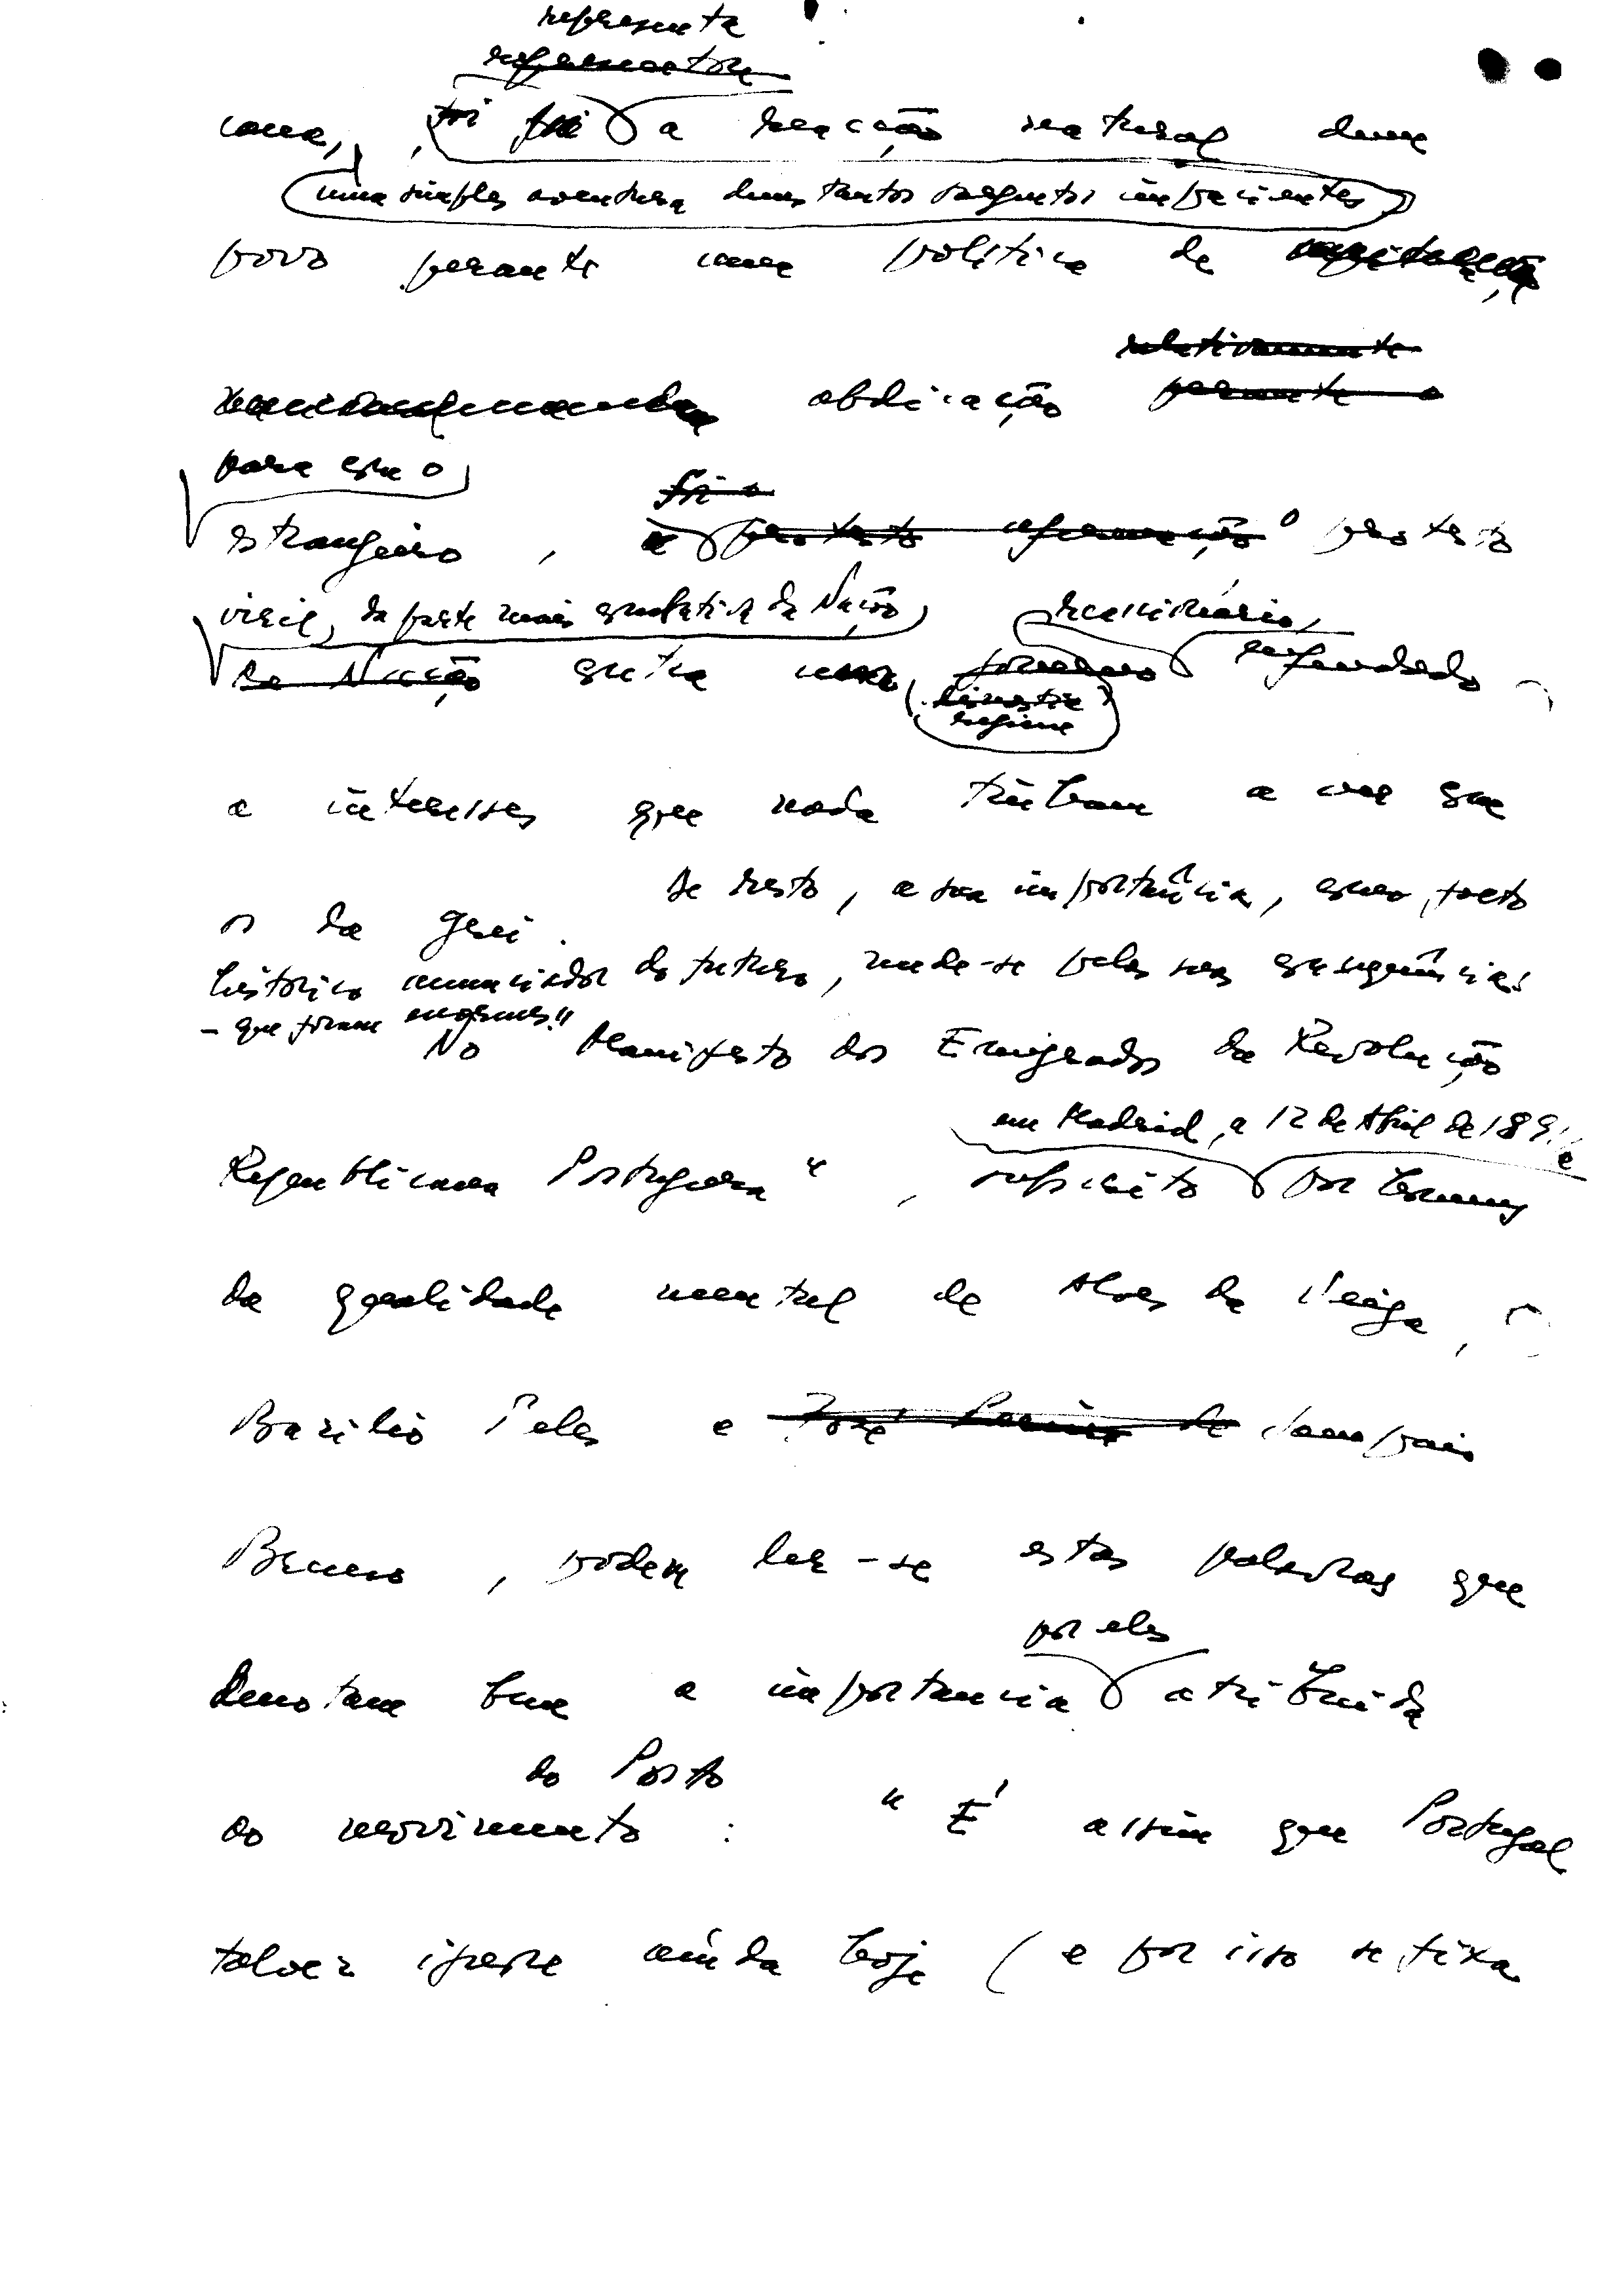 representa
cana,, foi foi a reacção natural dum
uma simples aventura duns tantos sargentos impacientes
povo perante uma política de capitulação
relativamente
abdicação perante o
para com o
foi o
estrangeiro, o protesto afirmação o protesto
viril, da parte mais combativa da Nação reaccionário,
da Nação contra um enfeudado
dinastia
regime
a interesses que nada tinham a ver com
De resto, a sua importância, como facto
os da grei.
histórico anunciador do futuro, mede-se pelas suas consequências
- que foram enormes."
No Manifesto dos Emigrados da Revolução
em Madrid, a 12 de Abril de 189
Republicana Portuguesa", subscrito por homens
da qualidade mental de Alves da Veiga,
Bazilio Teles e José Pereira de Sampaio
Bruno, podem ler-se estas palavras que
por eles
denotam bem a importancia atribuída
do Porto
ao movimento: "É assim que Portugal
talvez ignore ainda hoje (e por isso se fixa